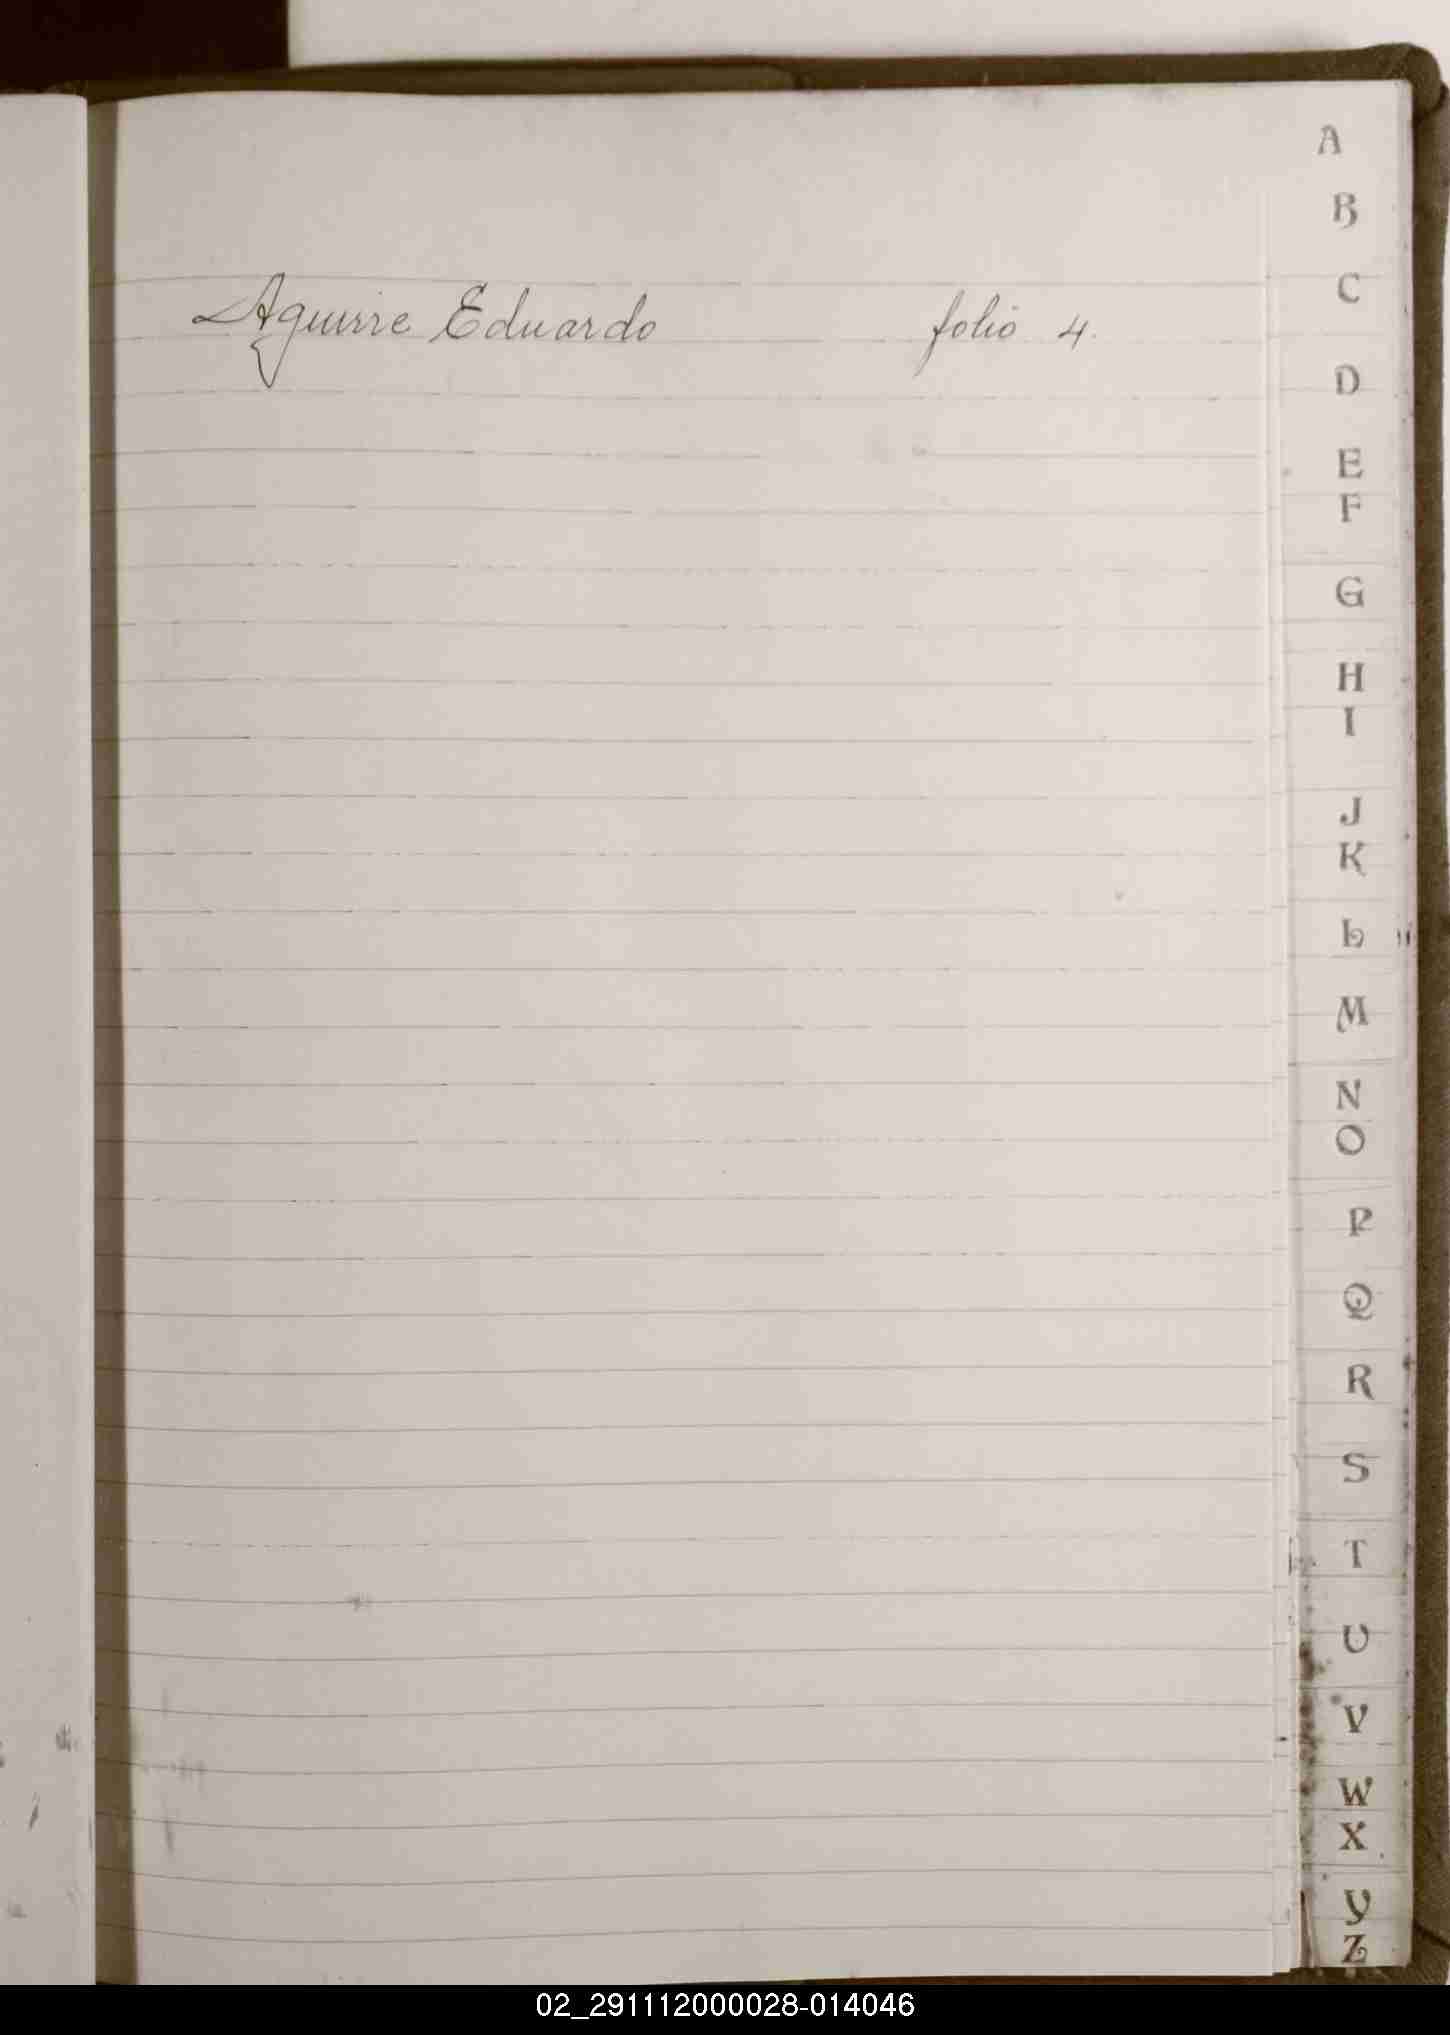 Aguirre Eduardo folio 4.
A
B
C
D
E
F
G
H
I
J
K
L
M
N
O
P
Q
R
S
T
U
V
W
X
Y
Z
02_291112000028-014046